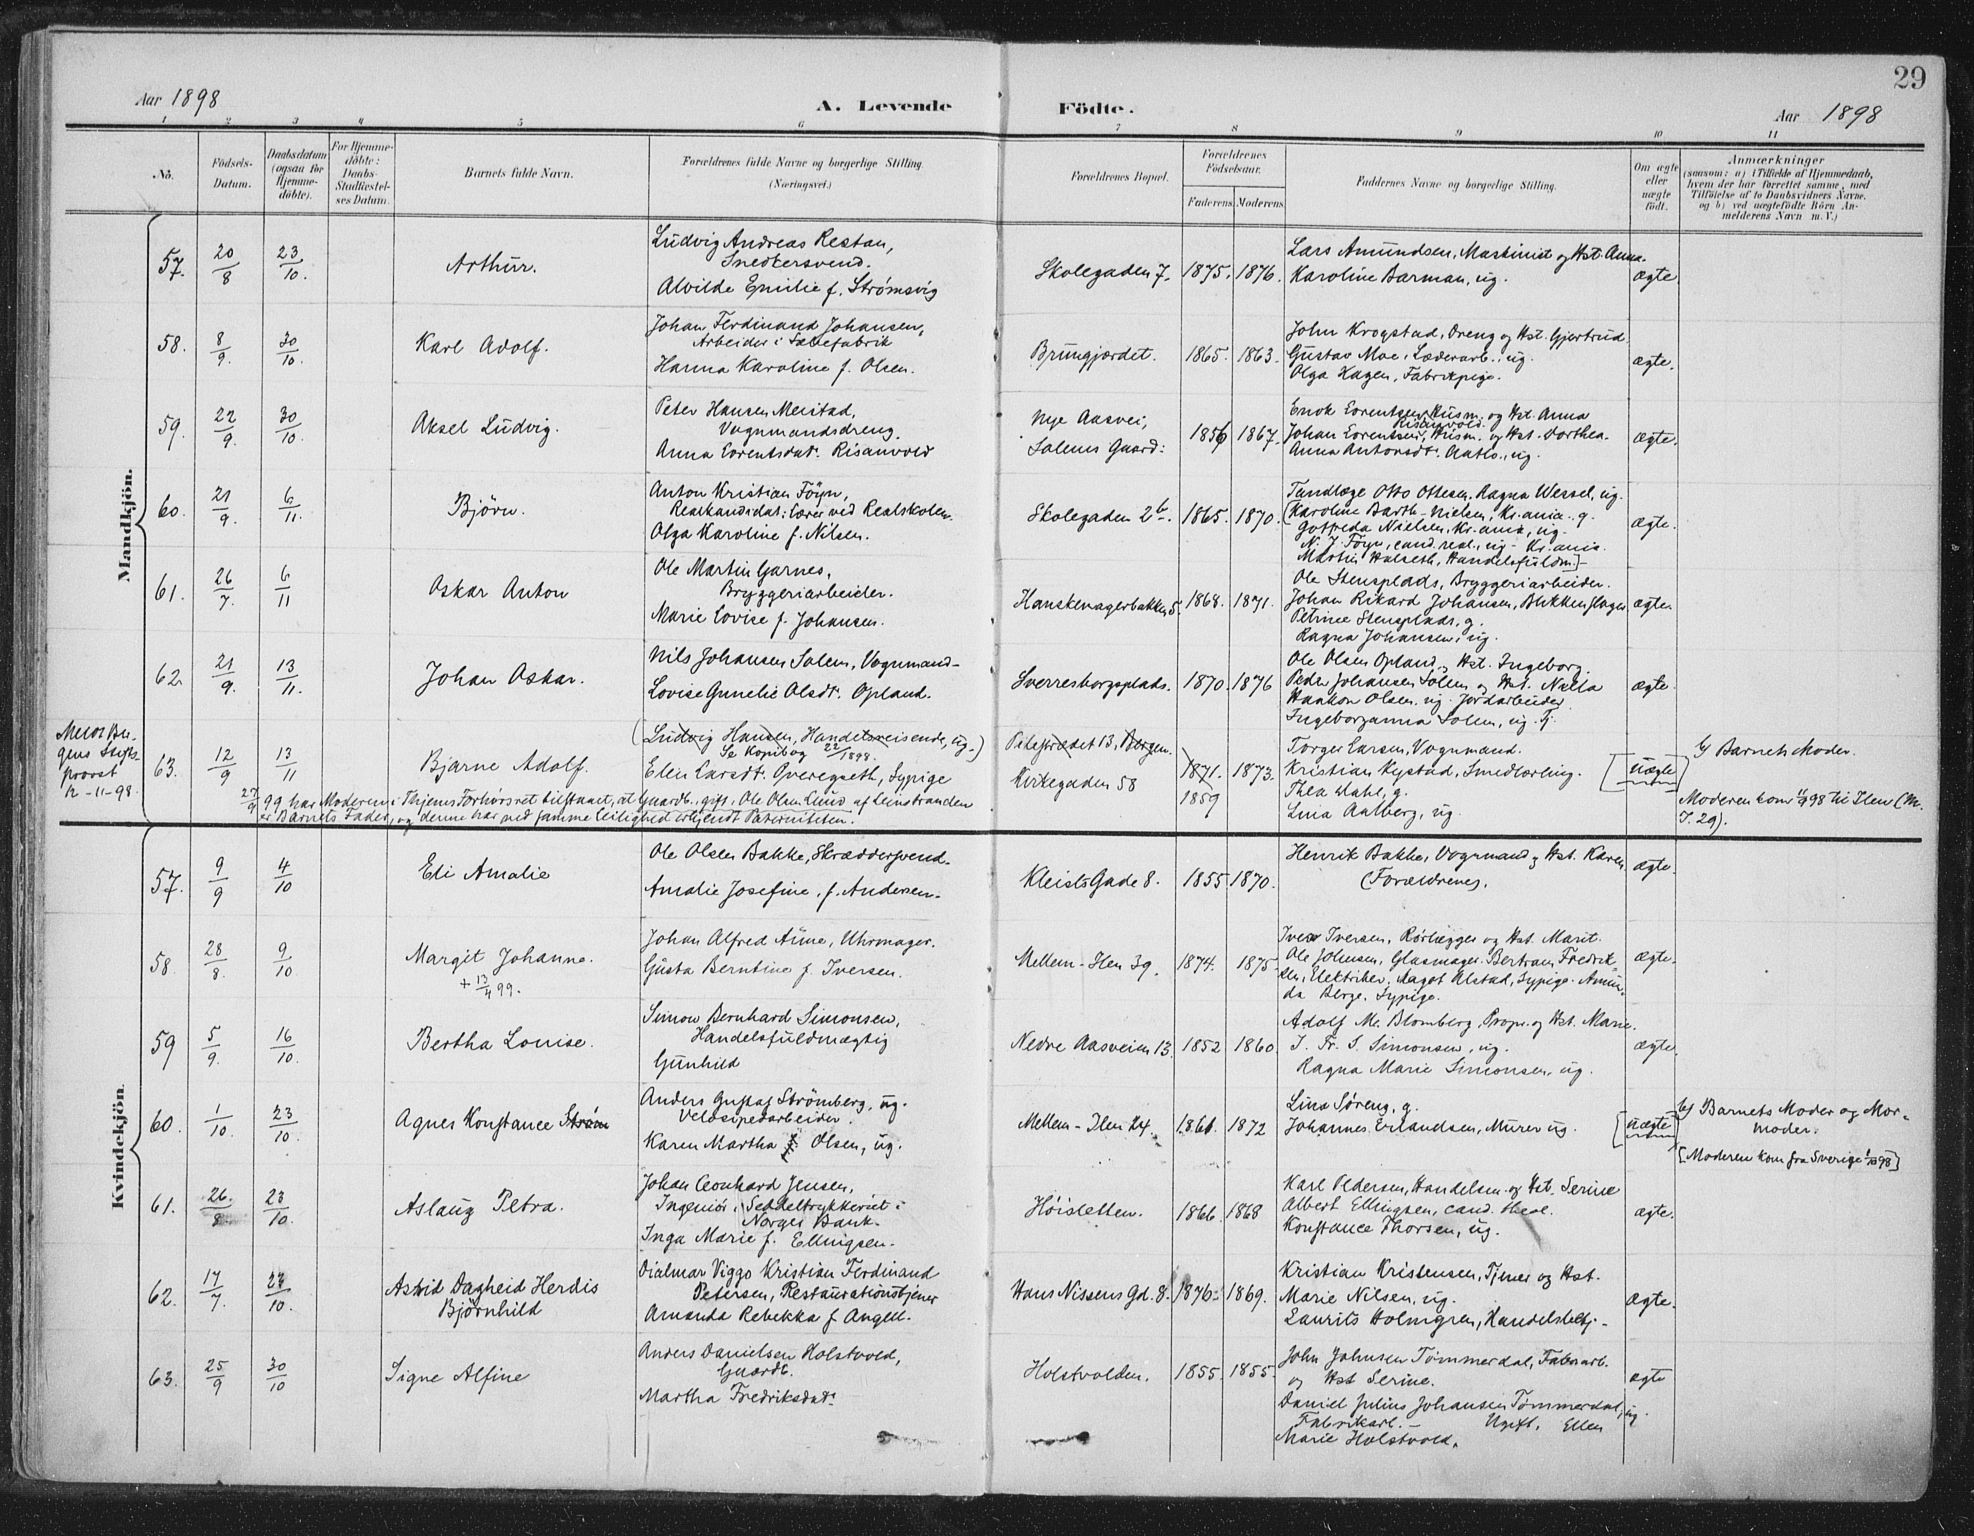 29
Aar 1898
A. Levende
Födte.
Aar 1898
1 2 3 4 5 6 7 8 9 10 11
No.
Födsels-
Datum.
Daabsdatum
(ogsaa for
Hjemme-
döbte).
For Hjemme-
döbte:
Daabs-
Stadfæstel-
ses Datum.
Barnets fulde Navn.
Forældrenes fulde Navne og borgerlige Stilling
(Næringsvei.)
Forældrenes Bopæl.
Forældrenes
Födselsaar.
Faderens Moderens
Faddernes Navne og borgerlige Stilling.
Om ægte
eller
uægte
födt.
Anmærkninger
(saasom: a) i Tilfælde af Hjemmedaab,
hvem der har forrettet samme, med
Tilföielse af to Daabsvidners Navne.
og b) ved uægtefödte Börn An-
melderens Navn m. V.)
Mandkjön.
57. 20/8 23/10. Arthur.
Ludvig Andreas Restan,
Snedkersvend.
Alvilde Emilie f. Strømsvig
Skolegaden 7. 1875. 1876.
Lars Amundsen, Maskinist og Hst. Anna.
Karoline Barman, ug.
ægte.
58. 8/9. 30/10. Karl Adolf.
Johan Ferdinand Johansen,
Arbeider i Sæbefabrik
Hanna Karoline f. Olsen.
Brungjordet. 1865. 1863.
John Krogstad, Dreng og Hst. Gjertrud.
Gustav Moe, Læderarb., ug.
Olga Hagen, Fabrikpige.
ægte.
59. 22/9. 30/10. Aksel Ludvig.
Peter Hansen Meistad,
Vognmandsdreng.
Anna Lorentsdat. Risanvold
Nye Aasvei,
Solems Gaard. 1856 1867.
Enok Lorentsen, Husm. og Hst. Anna
Risanvold.
Johan Lorentsen, Husm. og Hst. Dorthea.
Anna Antonsdt. Aatlo, ug.
ægte.
60. 21/9. 6/11. Björn.
Anton Kristian Föyn,
Realkandidat; Lærer ved Realskolen.
Olga Karoline f. Nilsen.
Skolegaden 2b. 1865. 1870.
Tandlæge Otto Ottesen, Ragna Wessel, ug.
(Karoline Barth-Nielsen, Kr.ania. g.
Gotfreda Nielsen, Kr.ania, ug.
N. J. Föyn, cand. real., ug - Kr.ania.
Martin Halseth, Handelsfuldm.)
ægte.
61. 26/7. 6/11 Oskar Anton
Ole Martin Garnes,
Bryggeriarbeider.
Marie Lovise f. Johansen.
Hanskemagerbakken 5. 1868. 1871.
Ole Stensplads, Bryggeriarbeider.
Johan Rikard Johansen, Blikkenslager
Petrine Stensplads, g.
Ragna Johansen, ug.
ægte.
62. 21/9. 13/11. Johan Oskar.
Nils Johansen Solem, Vognmand-
Lovise Gunelie Olsdt. Opland.
Sverresborgsplads. 1870. 1876
Ole Olsen Opland og Hst. Ingeborg.
Peder Johansen Solem og Hst. Nella
Haakon Olsen, ug. Jordarbeider
Ingeborganna Solem, ug. Tj.
ægte.
provst
12-11-98.
63. 12/9 13/11 Bjarne Adolf.
(Ludvig Hansen, Handelsreisende, ug.)
Se Kopibog 22/1898.
Elen Larsdt. Overegseth, Sypige
Pilestrædet 13, Bergen.
Kirkegaden 58
1871. 1873.
1859
Torger Larsen, Vognmand.
Kristian Rystad, Smedlærling.
Thea Dahl, g.
Lina Aalberg, ug.
[uægte]
b) Barnets Moder.
Moderen kom 1/9 98 til Ilen (M.
J. 29).
27/9 99 har Moderen i Thjems Forhørsret tilstaaet, at Gaardb., gift, Ole Olsen Lund af Leinstranden
er Barnets Fader, og denne har ved samme Leilighed erkjendt Paterniteten.
Kvindekjön.
57. 9/9 4/10 Eli Amalie
Ole Olsen Bakke, Skræddersvend.
Amalie Josefine f. Andersen.
Kleists Gade 8. 1855 1870.
Henrik Bakke, Vognmand og Hst. Karen
(Forældrene).
ægte.
58. 28/8. 9/10 Margit Johanne.
+ 13/4 99.
Johan Alfred Aune, Uhrmager.
Gusta Berntine f. Iversen.
Mellem-Ilen 39. 1874. 1875
Iver Iversen, Rørlægger og Hst. Marit.
Ole Johnsen, Glasmager. Bertram Fredrik-
sen, Elektriker, Aagot Alstad, Sypige. Amun-
da Berge, Sypige.
ægte.
59 5/9. 16/10. Bertha Louise.
Simon Bernhard Simonsen,
Handelsfuldmægtig
Gunhild
Nedre Aasveien 13. 1852 1860.
Adolf M. Blomberg, Propr. og Hst. Marie.
J. Fr. S. Simonsen, ug.
Ragna Marie Simonsen, ug.
ægte.
60. 1/10. 23/10. Agnes Konstance Strøm
Anders Gustaf Strömberg, ug.
Velosipedarbeider.
Karen Martha f. Olsen, ug.
Mellem-Ilen 24. 1861. 1872
Lina Søreng, g.
Johannes Erlandsen, Murer ug.
[uægte]
b) Barnets Moder og Mor-
moder.
[Moderen kom fra Sverige 1/10 98]
61. 26./8 23/10. Aslaug Petra.
Johan Leonhard Jensen,
Ingeniør i Seddeltrykkeriet i
Norges Bank.
Inga Marie f. Ellingsen.
Høisletten. 1866. 1868
Karl Pedersen, Handelsm. og Hst. Serine
Albert Ellingsen, cand. theol.
Konstance Thorsen, ug.
ægte.
62. 17/7. 23/10. Astrid Dagheid Herdis
Björnhild
Hialmar Viggo Kristian Ferdinand
Petersen, Restaurationstjener
Amanda Rebekka f. Angell.
Hans Nissens Gd. 8. 1876. 1869.
Kristian Kristensen, Tjener og Hst.
Marie Nilsen, ug.
Laurits Holmgren, Handelsbetj.
ægte.
63. 25/9 30/10 Signe Alfine
Anders Danielsen Holstvold,
Gaardb.
Martha Fredriksdat.
Holstvolden. 1855. 1855.
John Johnsen Tømmerdal, Fabrikarb.
og Hst Serine.
Daniel Julius Johansen Tømmerdal, ug.
Fabrikarb. - Ugift, Ellen
Marie Holstvold.
ægte